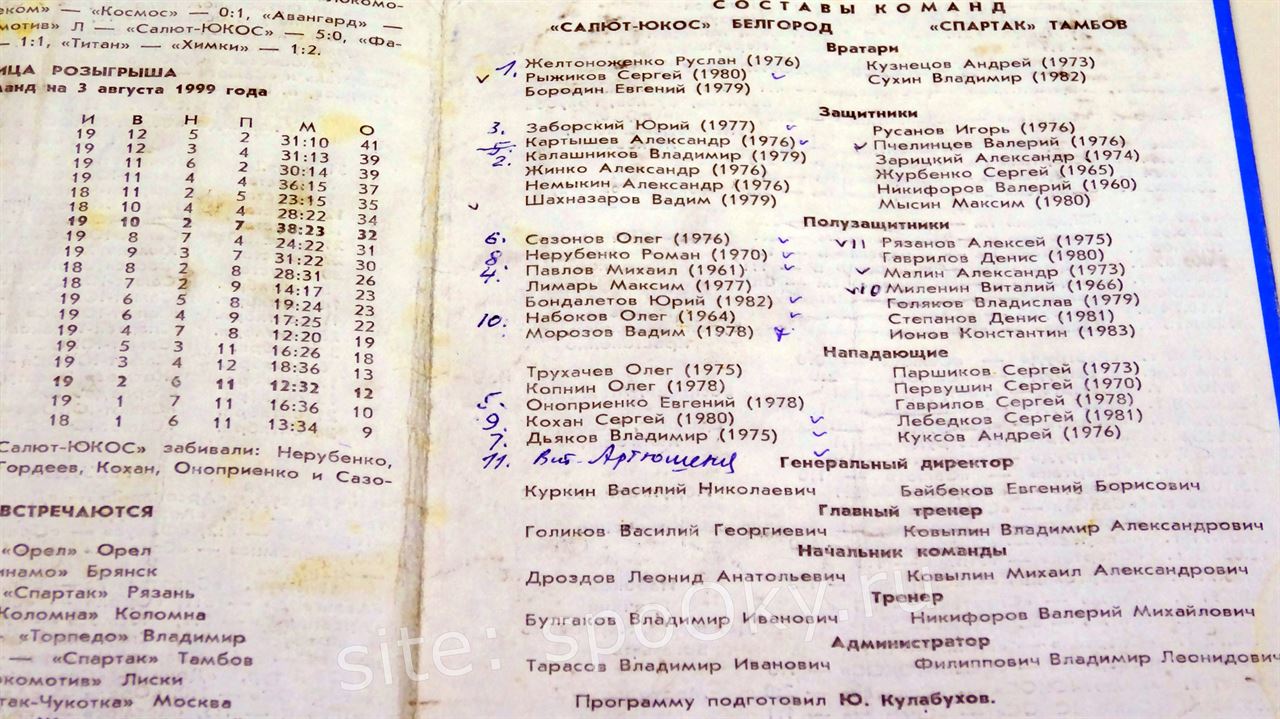 еком» — «Космос» — 0:1, «Авангард» —
мотив» Л — «Салют-ЮКОС» — 5:0, «Фа-
— 1:1, «Титан» — «Химки» — 1:2.
ИЦА РОЗЫГРЫША
манд на 3 августа 1999 года
И В Н П М О
19 12 5 2 31:10 41
19 12 3 4 31:13 39
19 11 6 2 30:14 39
19 11 4 4 36:15 37
18 11 2 5 23:15 35
18 10 4 4 28:22 34
19 10 2 7 38:23 32
19 8 7 4 24:22 31
19 9 3 7 31:22 30
18 8 2 8 28:31 26
18 7 2 9 14:17 23
19 6 5 8 19:24 23
19 6 4 9 17:25 22
19 4 7 8 12:20 19
19 5 3 11 16:26 18
19 3 4 12 18:36 13
19 2 6 11 12:32 12
19 1 7 11 16:36 10
18 1 6 11 13:34 9
Салют-ЮКОС» забивали: Нерубенко,
Гордеев, Кохан, Оноприенко и Сазо-
ВСТРЕЧАЮТСЯ
«Орел» Орел
инамо» Брянск
«Спартак» Рязань
Коломна» Коломна
— «Торпедо» Владимир
— «Спартак» Тамбов
окомотив» Лиски
так-Чукотка» Москва
СОСТАВЫ КОМАНД
«САЛЮТ-ЮКОС» БЕЛГОРОД «СПАРТАК» ТАМБОВ
Вратари
1. Желтоноженко Руслан (1976) Кузнецов Андрей (1973)
Рыжиков Сергей (1980) Сухин Владимир (1982)
Бородин Евгений (1979)
Защитники
3. Заборский Юрий (1977) Русанов Игорь (1976)
Картышев Александр (1976) Пчелинцев Валерий (1976)
2. Калашников Владимир (1979) Зарицкий Александр (1974)
Жинко Александр (1976) Журбенко Сергей (1965)
Немыкин Александр (1976) Никифоров Валерий (1960)
Шахназаров Вадим (1979) Мысин Максим (1980)
Полузащитники
6. Сазонов Олег (1976) 11 Рязанов Алексей (1975)
8. Нерубенко Роман (1970) Гаврилов Денис (1980)
4. Павлов Михаил (1961) Малин Александр (1973)
Лимарь Максим (1977) 10 Миленин Виталий (1966)
Бондалетов Юрий (1982) Голяков Владислав (1979)
10. Набоков Олег (1964) Степанов Денис (1981)
Морозов Вадим (1978) Ионов Константин (1983)
Нападающие
Трухачев Олег (1975) Паршиков Сергей (1973)
Копнин Олег (1978) Первушин Сергей (1970)
5. Оноприенко Евгений (1978) Гаврилов Сергей (1978)
9. Кохан Сергей (1980) Лебедков Сергей (1981)
7. Дьяков Владимир (1975) Куксов Андрей (1976)
11. Вит. Артюшеня
Генеральный директор
Куркин Василий Николаевич Байбеков Евгений Борисович
Главный тренер
Голиков Василий Георгиевич Ковылин Владимир Александрович
Начальник команды
Дроздов Леонид Анатольевич Ковылин Михаил Александрович
Тренер
Булгаков Владимир Иванович Никифоров Валерий Михайлович
Администратор
Тарасов Владимир Иванович Филиппович Владимир Леонидович
Программу подготовил Ю. Кулабухов.
site: spoOky.ru